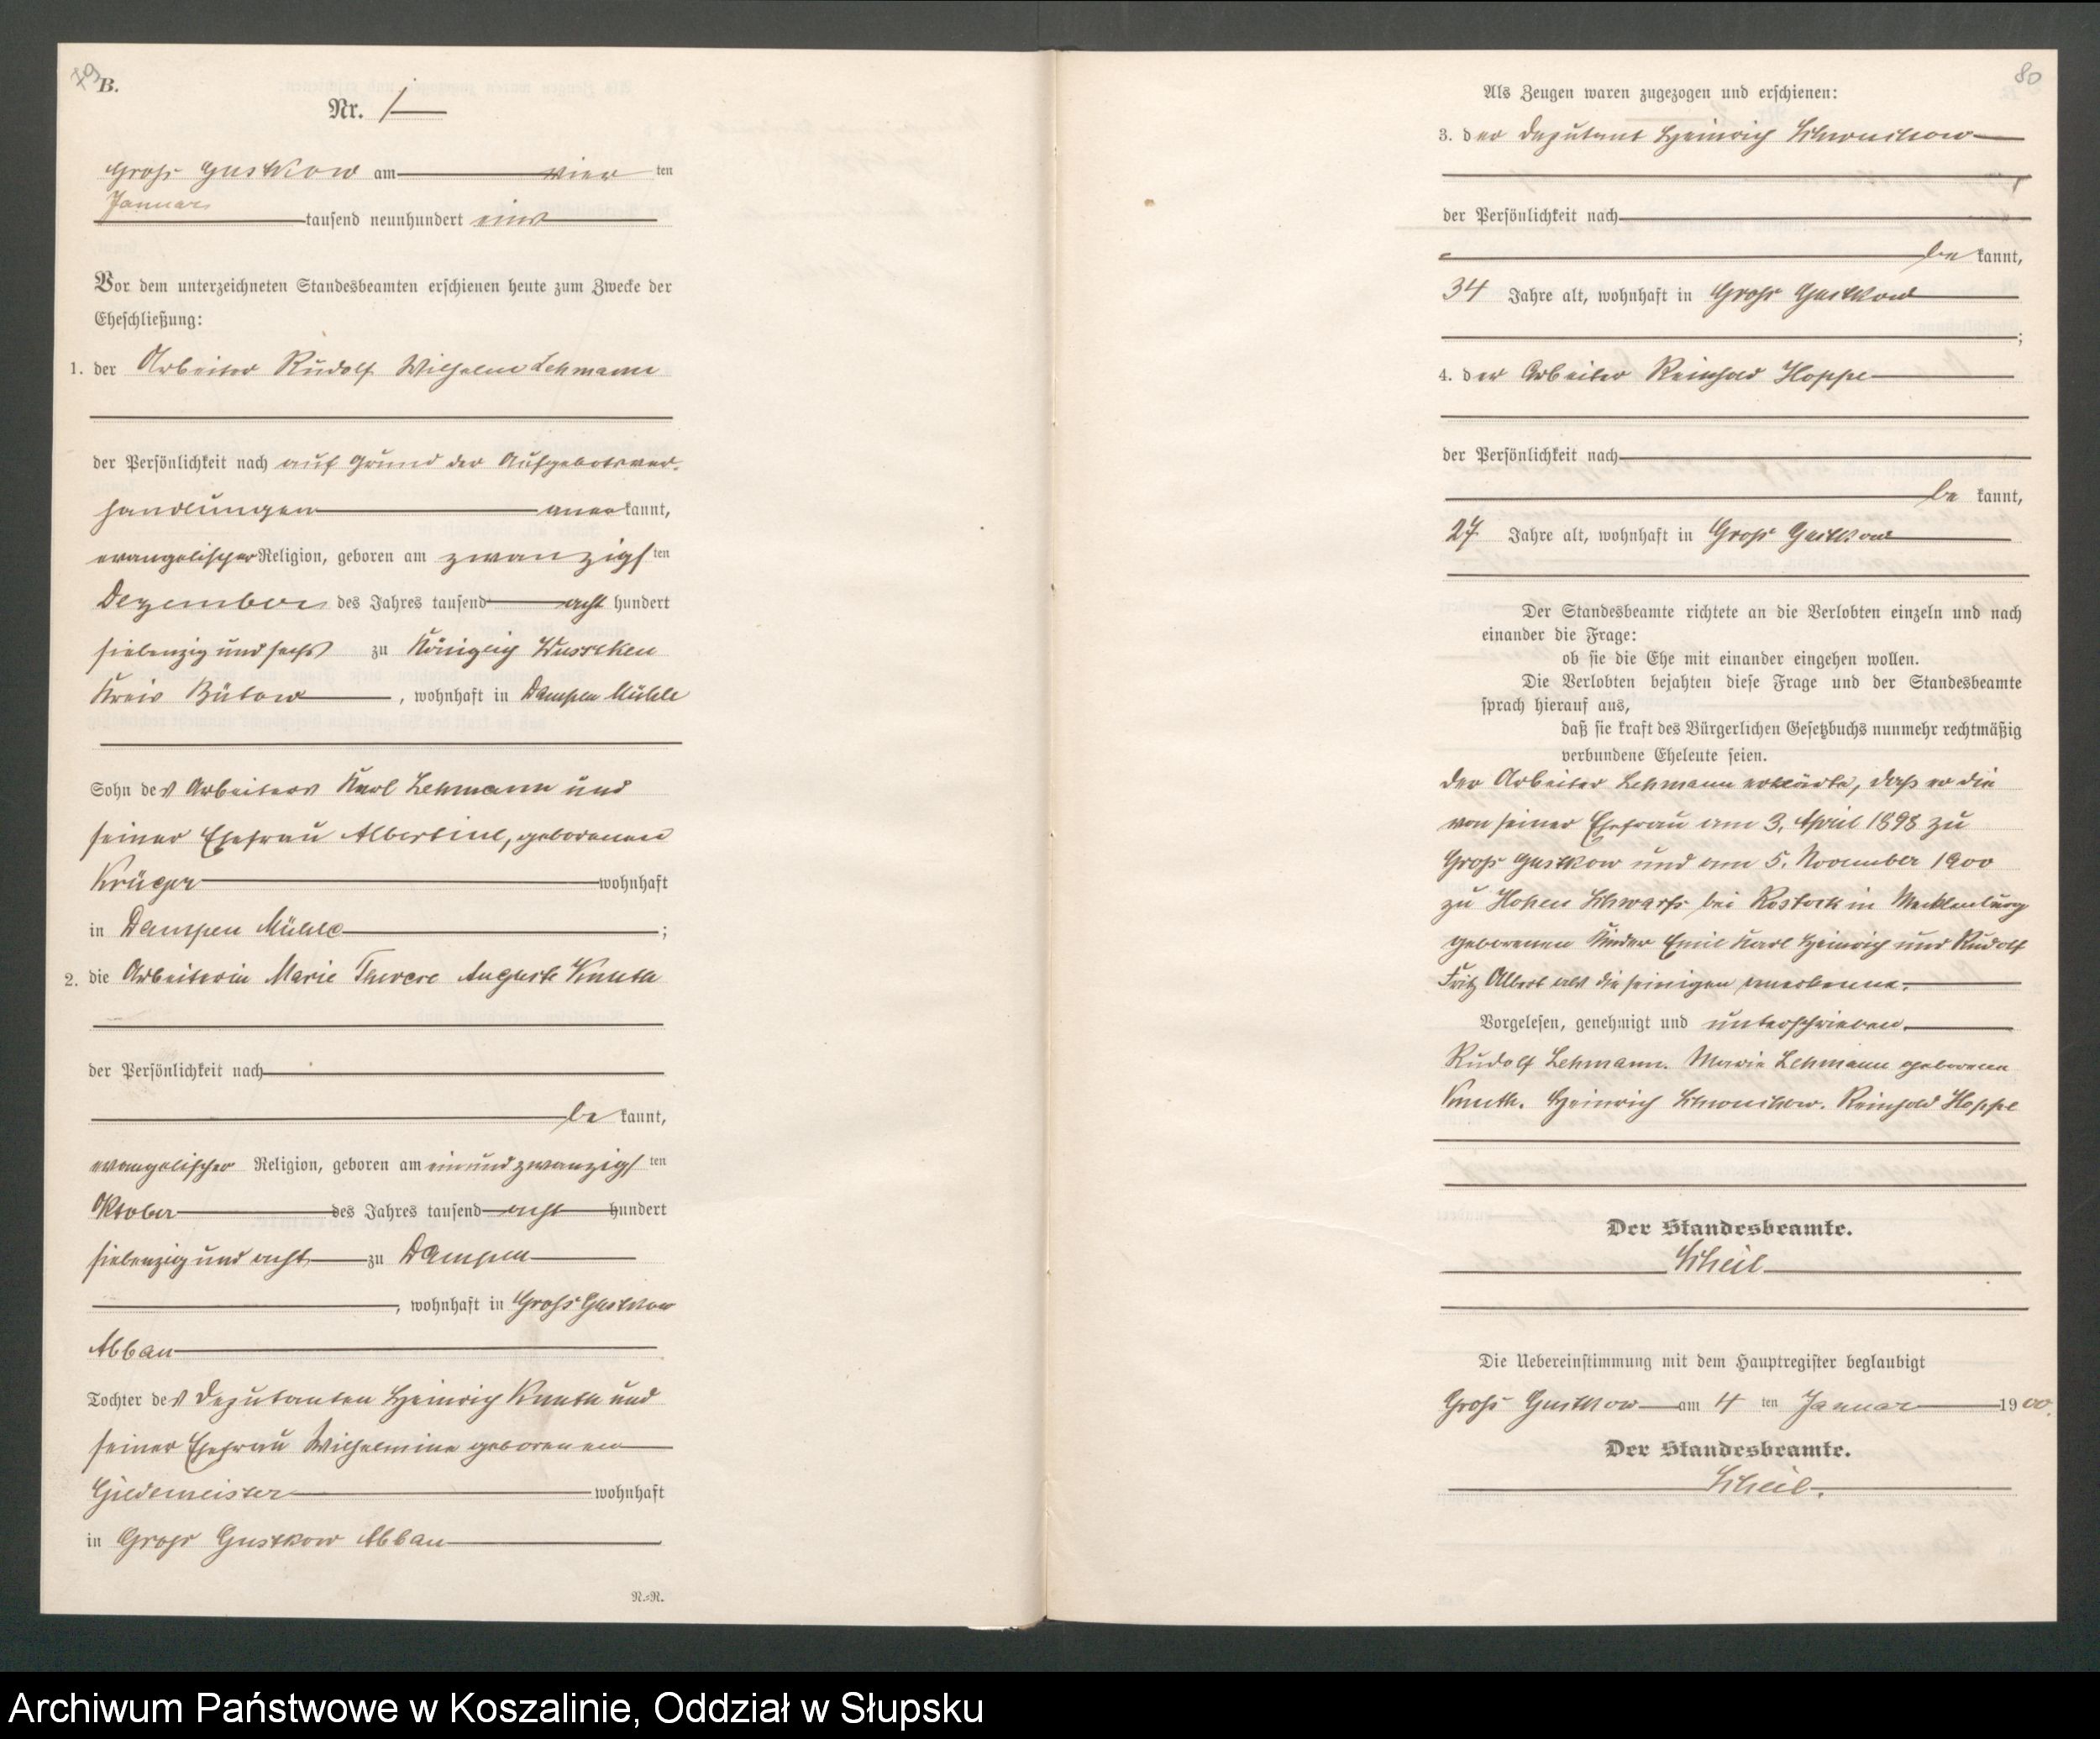 79
B.
Nr. 1
Groß Gustkow am vier ten
Januar
tausend neunhundert eins
Vor dem unterzeichneten Standesbeamten erschienen heute zum Zwecke der
Eheschließung:
1. der Arbeiter Rudolf Wilhelm Lehmann
der Persönlichkeit nach auf Grund der Aufgebotsver-
handlungen aner kannt,
evangelischer Religion, geboren am zwanzigs ten
Dezember des Jahres tausend acht hundert
siebenzig und sechs zu Königlich Wusseken
Kreis Bütow, wohnhaft in Dampen Mühle
Sohn des Arbeiters Karl Lehmann und
seiner Ehefrau Albertine, geborenen
Krüger wohnhaft
in Dampen Mühle;
2. die Arbeiterin Marie Therese Auguste Knuth
der Persönlichkeit nach
be kannt,
evangelischer Religion, geboren am einundzwanzigs ten
Oktober des Jahres tausend acht hundert
siebenzig und acht zu Dampen
, wohnhaft in Groß Gustkow
Abbau
Tochter des Deputanten Heinrich Knuth und
seiner Ehefrau Wilhelmine geborenen
Gildemeister wohnhaft
in Groß Gustkow Abbau
N.=N.
80
Als Zeugen waren zugezogen und erschienen:
3. der Deputant Heinrich
der Persönlichkeit nach
be kannt,
34 Jahre alt, wohnhaft in Groß Gustkow
;
4. der Arbeiter Reinhold Hoppe
der Persönlichkeit nach
be kannt,
27 Jahre alt, wohnhaft in Groß Gustkow
Der Standesbeamte richtete an die Verlobten einzeln und nach
einander die Frage:
ob sie die Ehe mit einander eingehen wollen.
Die Verlobten bejahten diese Frage und der Standesbeamte
sprach hierauf aus,
daß sie kraft des Bürgerlichen Gesetzbuchs nunmehr rechtmäßig
verbundene Eheleute seien.
Der Arbeiter Lehmann erklärte, daß er die
von seiner Ehefrau am 3. April 1898 zu
Groß Gustkow und am 5. November 1900
zu Hohen Schwarfs bei Rostock in Mecklenburg
geborenen Kinder Emil Karl Heinrich und Rudolf
Fritz Albert als die seinigen anerkenne.
Vorgelesen, genehmigt und unterschrieben.
Rudolf Lehmann. Marie Lehmann geborene
Knuth. Heinrich Reinhold Hoppe
Der Standesbeamte.
Scheil
Die Uebereinstimmung mit dem Hauptregister beglaubigt
Groß Gustkow am 4 ten Januar 1900.
Der Standesbeamte.
Scheil.
Archiwum Państwowe w Koszalinie, Oddział w Słupsku